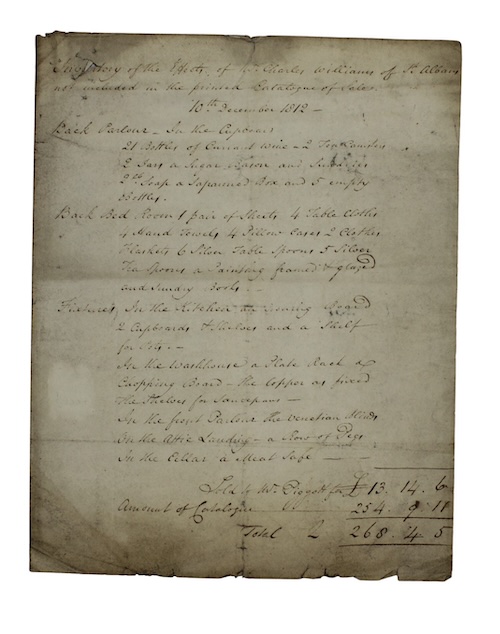 Inventory of the Effects of Mr Charles Williams of St Albans
not included in the printed Catalogue of Sales
10th December 1812 —
Back Parlour — In the Cupboard
21 Bottles of Currant Wine — 2 Tea
2 Jars a Sugar Bason and Sundries
Soap a Japanned Box and 5 empty
Bottles.
Back Bed Room 1 pair of Sheets 4 Table Cloths
4 Hand Towels 4 Pillow Cases 2 Clothes
Flaskets 6 Silver Table Spoons 5 Silver
Tea Spoons a Painting framed & glazed
and Sundry Books. —
Fixtures, In the Kitchen an Ironing Board
2 Cupboards & Shelves and a Shelf
for Pots. —
In the Washhouse a Plate Rack a
Chopping Board — the Copper as fixed
the Shelves for Saucepans —
In the front Parlour the Venetian Blinds
On the Attic Landing — a Row of Pegs
In the Cellar a Meat Safe —
Sold to Mr Piggott for £ 13. 14. 6
Amount of Catalogue 254. 9. 11
Total £ 268. 4. 5